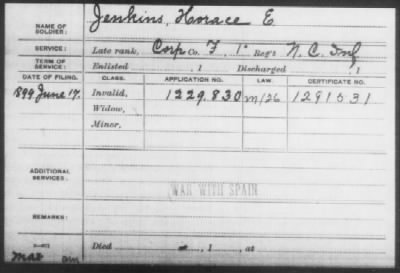 NAME OF SOLDIER: Jenkins, Horace E
SERVICE: Late rank, Corp Co. F, 1" Reg't N.C. Inf
TERM OF SERVICE: Enlisted , 1 Discharged , 1
DATE OF FILING. CLASS. APPLICATION NO. LAW. CERTIFICATE NO.
1899 June 17. Invalid, 1229.830 m/26 1291531
Widow,
Minor,
ADDITIONAL SERVICES:
WAR WITH SPAIN
REMARKS:
Died , 1 , at